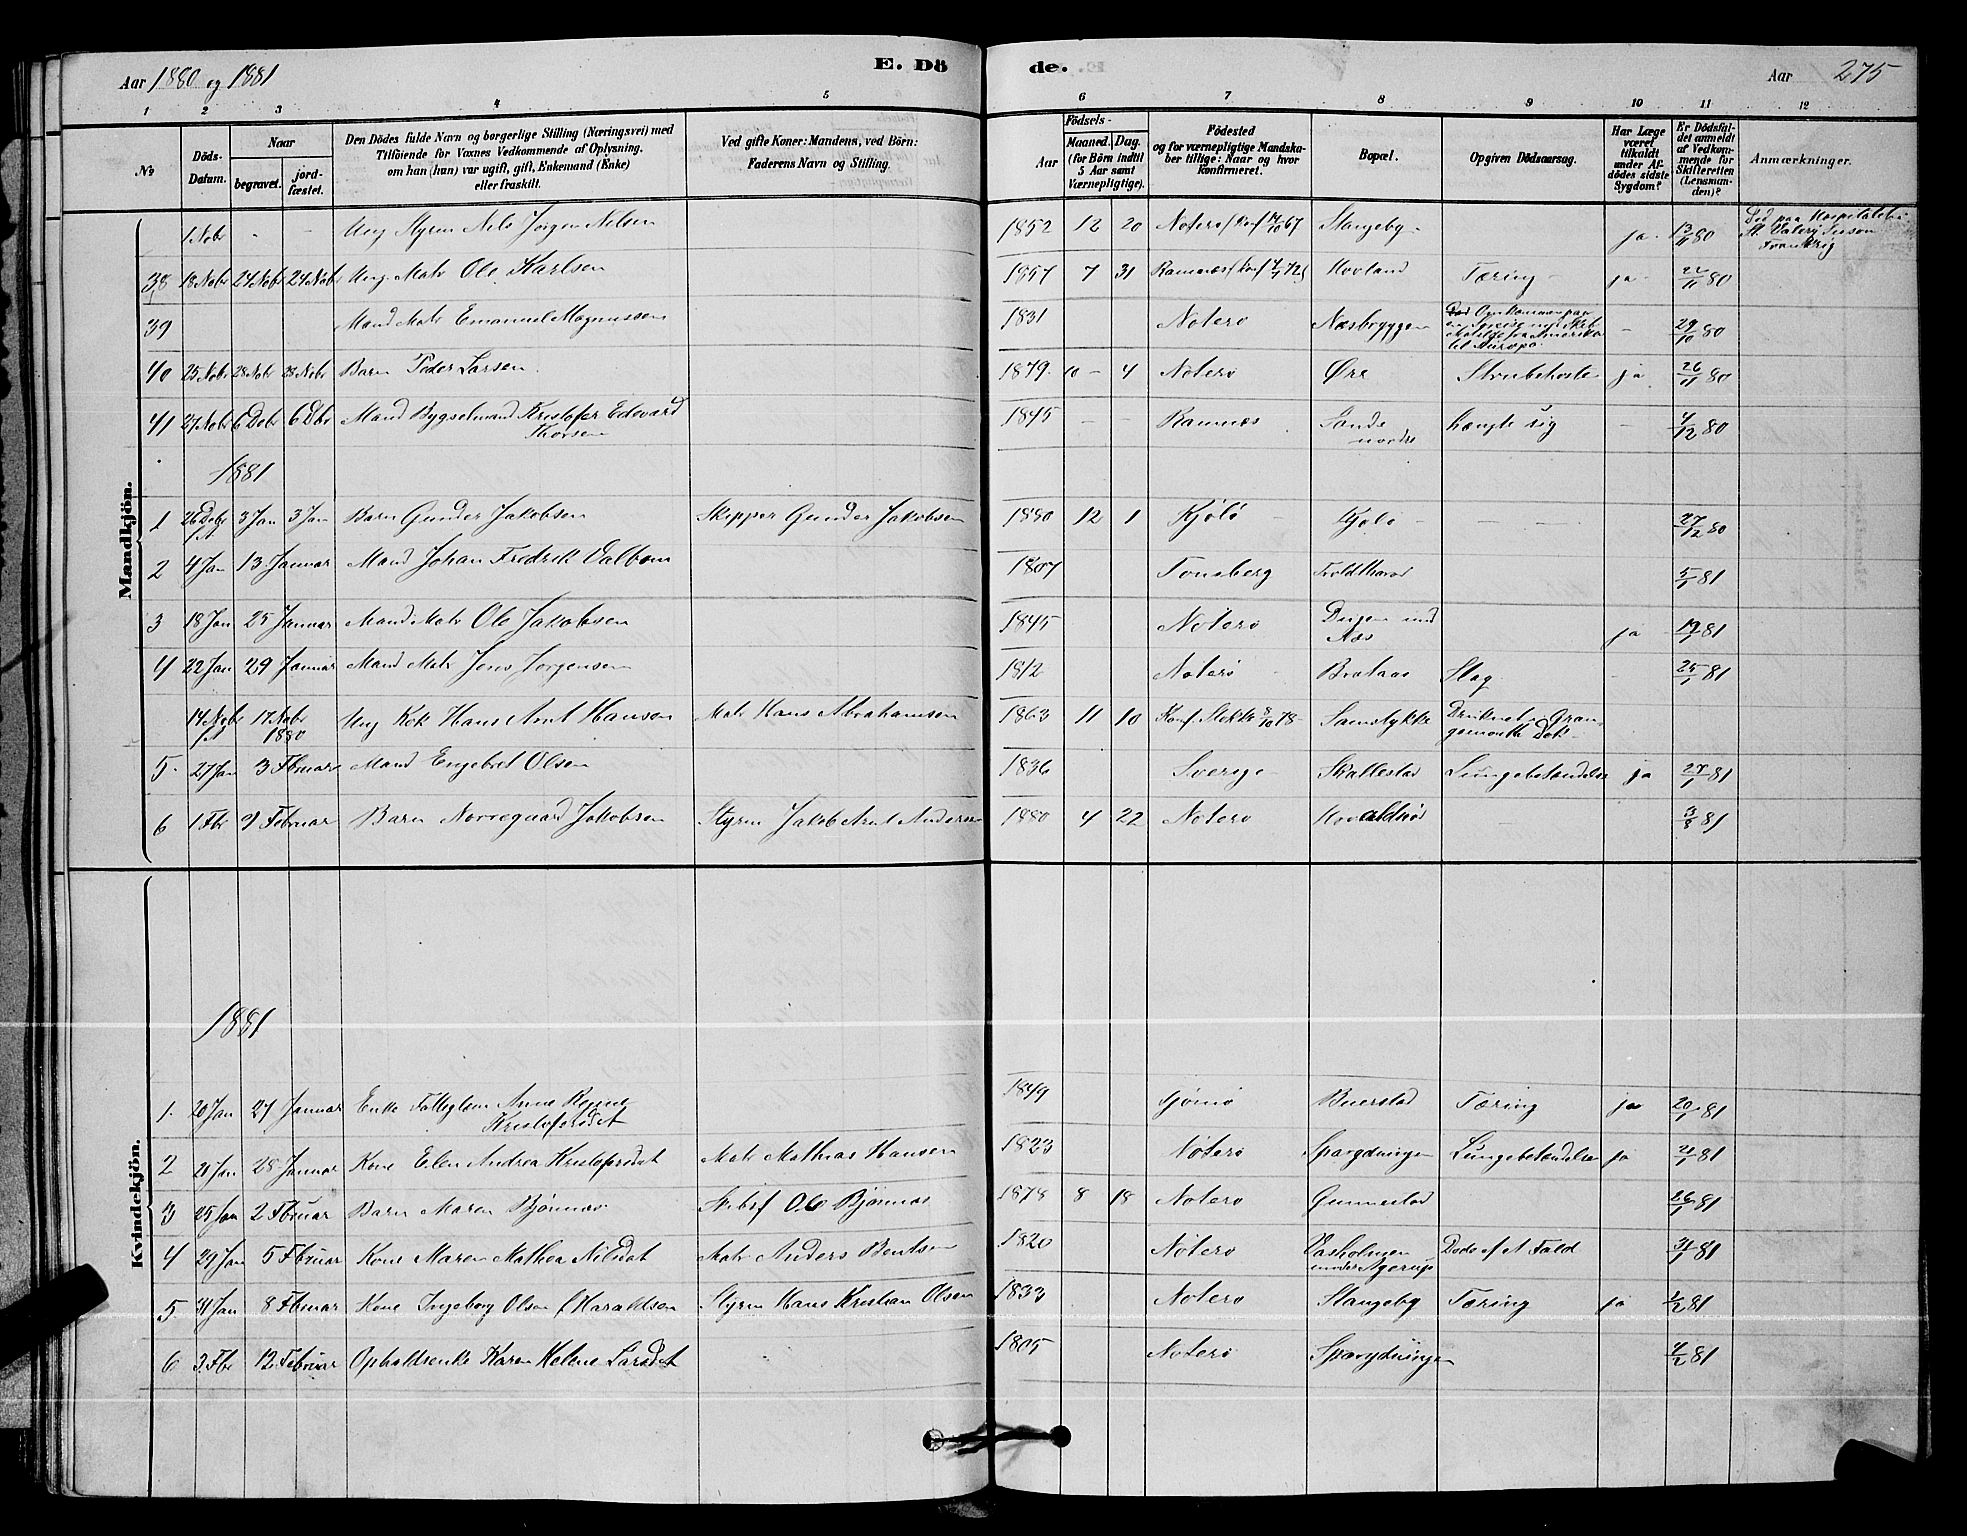 Aar 1880 og 1881
E. Dö de.
Aar 275
1 2 3 4 5 6 7 8 9 10 11 12
No
Döds-Datum.
Naar
begravet.
jord-fæstet.
Den Dödes fulde Navn og borgerlige Stilling (Næringsvei) med
Tilföiende for Voxnes Vedkommende af Oplysning,
om han (hun) var ugift, gift, Enkemand (Enke)
eller fraskilt.
Ved gifte Koner: Mandens, ved Börn:
Faderens Navn og Stilling.
Födsels-
Aar
Maaned. Dag.
(for Börn indtil
5 Aar samt
Værnepligtige).
Födested
og for værnepligtige Mandska-
ber tillige: Naar og hvor
konfirmeret.
Bopæl.
Opgiven Dödsaarsag.
Har Læge
været
tilkaldt
under Af-
dödes sidste
Sygdom?
Er Dödsfal-
det anmeldt
af Vedkom-
mende for
Skifteretten
(Lensman-
den)?
Anmærkninger.
Mandkjön.
1 Nobr - - Ung Styrm Nils Jörgen Nilsen 1852 12 20 Nøterø Konf 67 Stangeby ja 13/11 80 Død paa Hospitalet i St. Valery Frankrig
38 18 Nobr 24 Nobr 24 Nobr Ung Matr Ole Karlsen 1857 7 31 Ramnæs Hovland Tæring ja 22/11 80
39 Mand Matr Emanuel Magnussen 1831 Nøterø Næsbryggen Omkommen paa en Reise med Skib fra Amerika til Europa - 29/10 80
40 25 Nobr 28 Nobr 28 Nobr Barn Peder Larsen 1879 10 4 Nøterø Øre Strubehoste ja 26/11 80
41 27 Nobr 6 Debr 6 Dbr Mand Bygselmand Kristofer Edvard Thorsen 1845 - - Ramnæs Sande nordre hængte sig - 4/12 80
1881
1 26 Debr 3 Jan 3 Jan Barn Gunder Jakobsen Skipper Gunder Jakobsen 1880 12 1 Kjölö Kjölö - - 27/12 80
2 4 Jan 13 Januar Mand Johan Fredrik Valbom 1807 Tønsberg 5/1 81
3 18 Jan 25 Januar Mand Matr Ole Jakobsen 1845 Nøterø ja 19/1 81
4 22 Jan 29 Januar Mand Matr Jens Jørgensen 1812 Nøterø Brataas Slag - 25/1 81
14 Nobr 17 Nobr 1880 Ung Kok Hans Arnt Hansen Matr Hans Abrahamsen 1863 11 10 Konf. Stokke 8/10 78 Samstykke Druknet i Grangemouth Dok
5 27 Jan 3 Fbruar Mand Engebret Olsen 1836 Sverige Skallestad Lungebetændelse ja 27/1 81
6 1 Fbr 9 Februar Barn Norregaard Jakobsen Styrm Jakob Arnt Andersen 1880 4 22 Nøterø - 81
Kvindekjön.
1881
1. 20 Jan 27 Januar Enke Fattiglem Anne Kristofersdat 1849 Tjømø Buerstad Tæring ja 20/1 81
2 20 Jan 28 Januar Kone Elen Andrea Kristofersdat Matr Mathias Hansen 1823 Nøterø Lungebetændelse ja 21/1 81
3 25 Jan 2 Fbruar Barn Maren Bjønnæs Skibsf Ole Bjønnæs 1878 8 18 Nøterø Gunnestad 26/1 81
4 29 Jan 5 Fbruar Kone Maren Mathea Nilsdat Matr Anders Bentsen 1820 Nøterø Vasholmen under Agerup Døde af et Fald 31/1 81
5. 31 Jan 8 Fbruar Kone Ingeborg Olsen f Haraldsen Styrm Hans Kristian Olsen 1833 Nøterø Stangeby Tæring ja 1/2 81
6 3 Fbr 12 Februar Opholdsenke Karen Helene Larsdat 1805 Nøterø 4/2 81